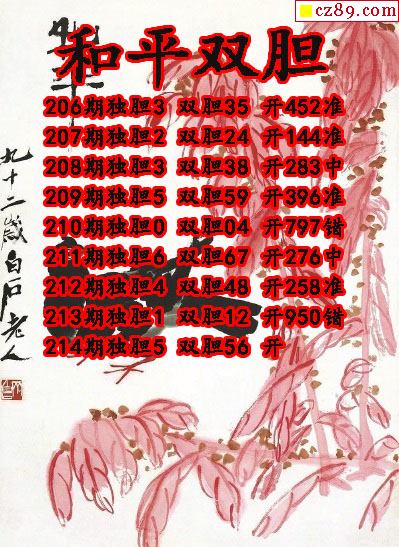 cz89.com
和平
和平双胆
206期独胆3 双胆35 开452准
207期独胆2 双胆24 开144准
208期独胆3 双胆38 开283中
209期独胆5 双胆59 开396准
210期独胆0 双胆04 开797错
211期独胆6 双胆67 开276中
212期独胆4 双胆48 开258准
213期独胆1 双胆12 开950错
214期独胆5 双胆56 开
九十二岁白石老人